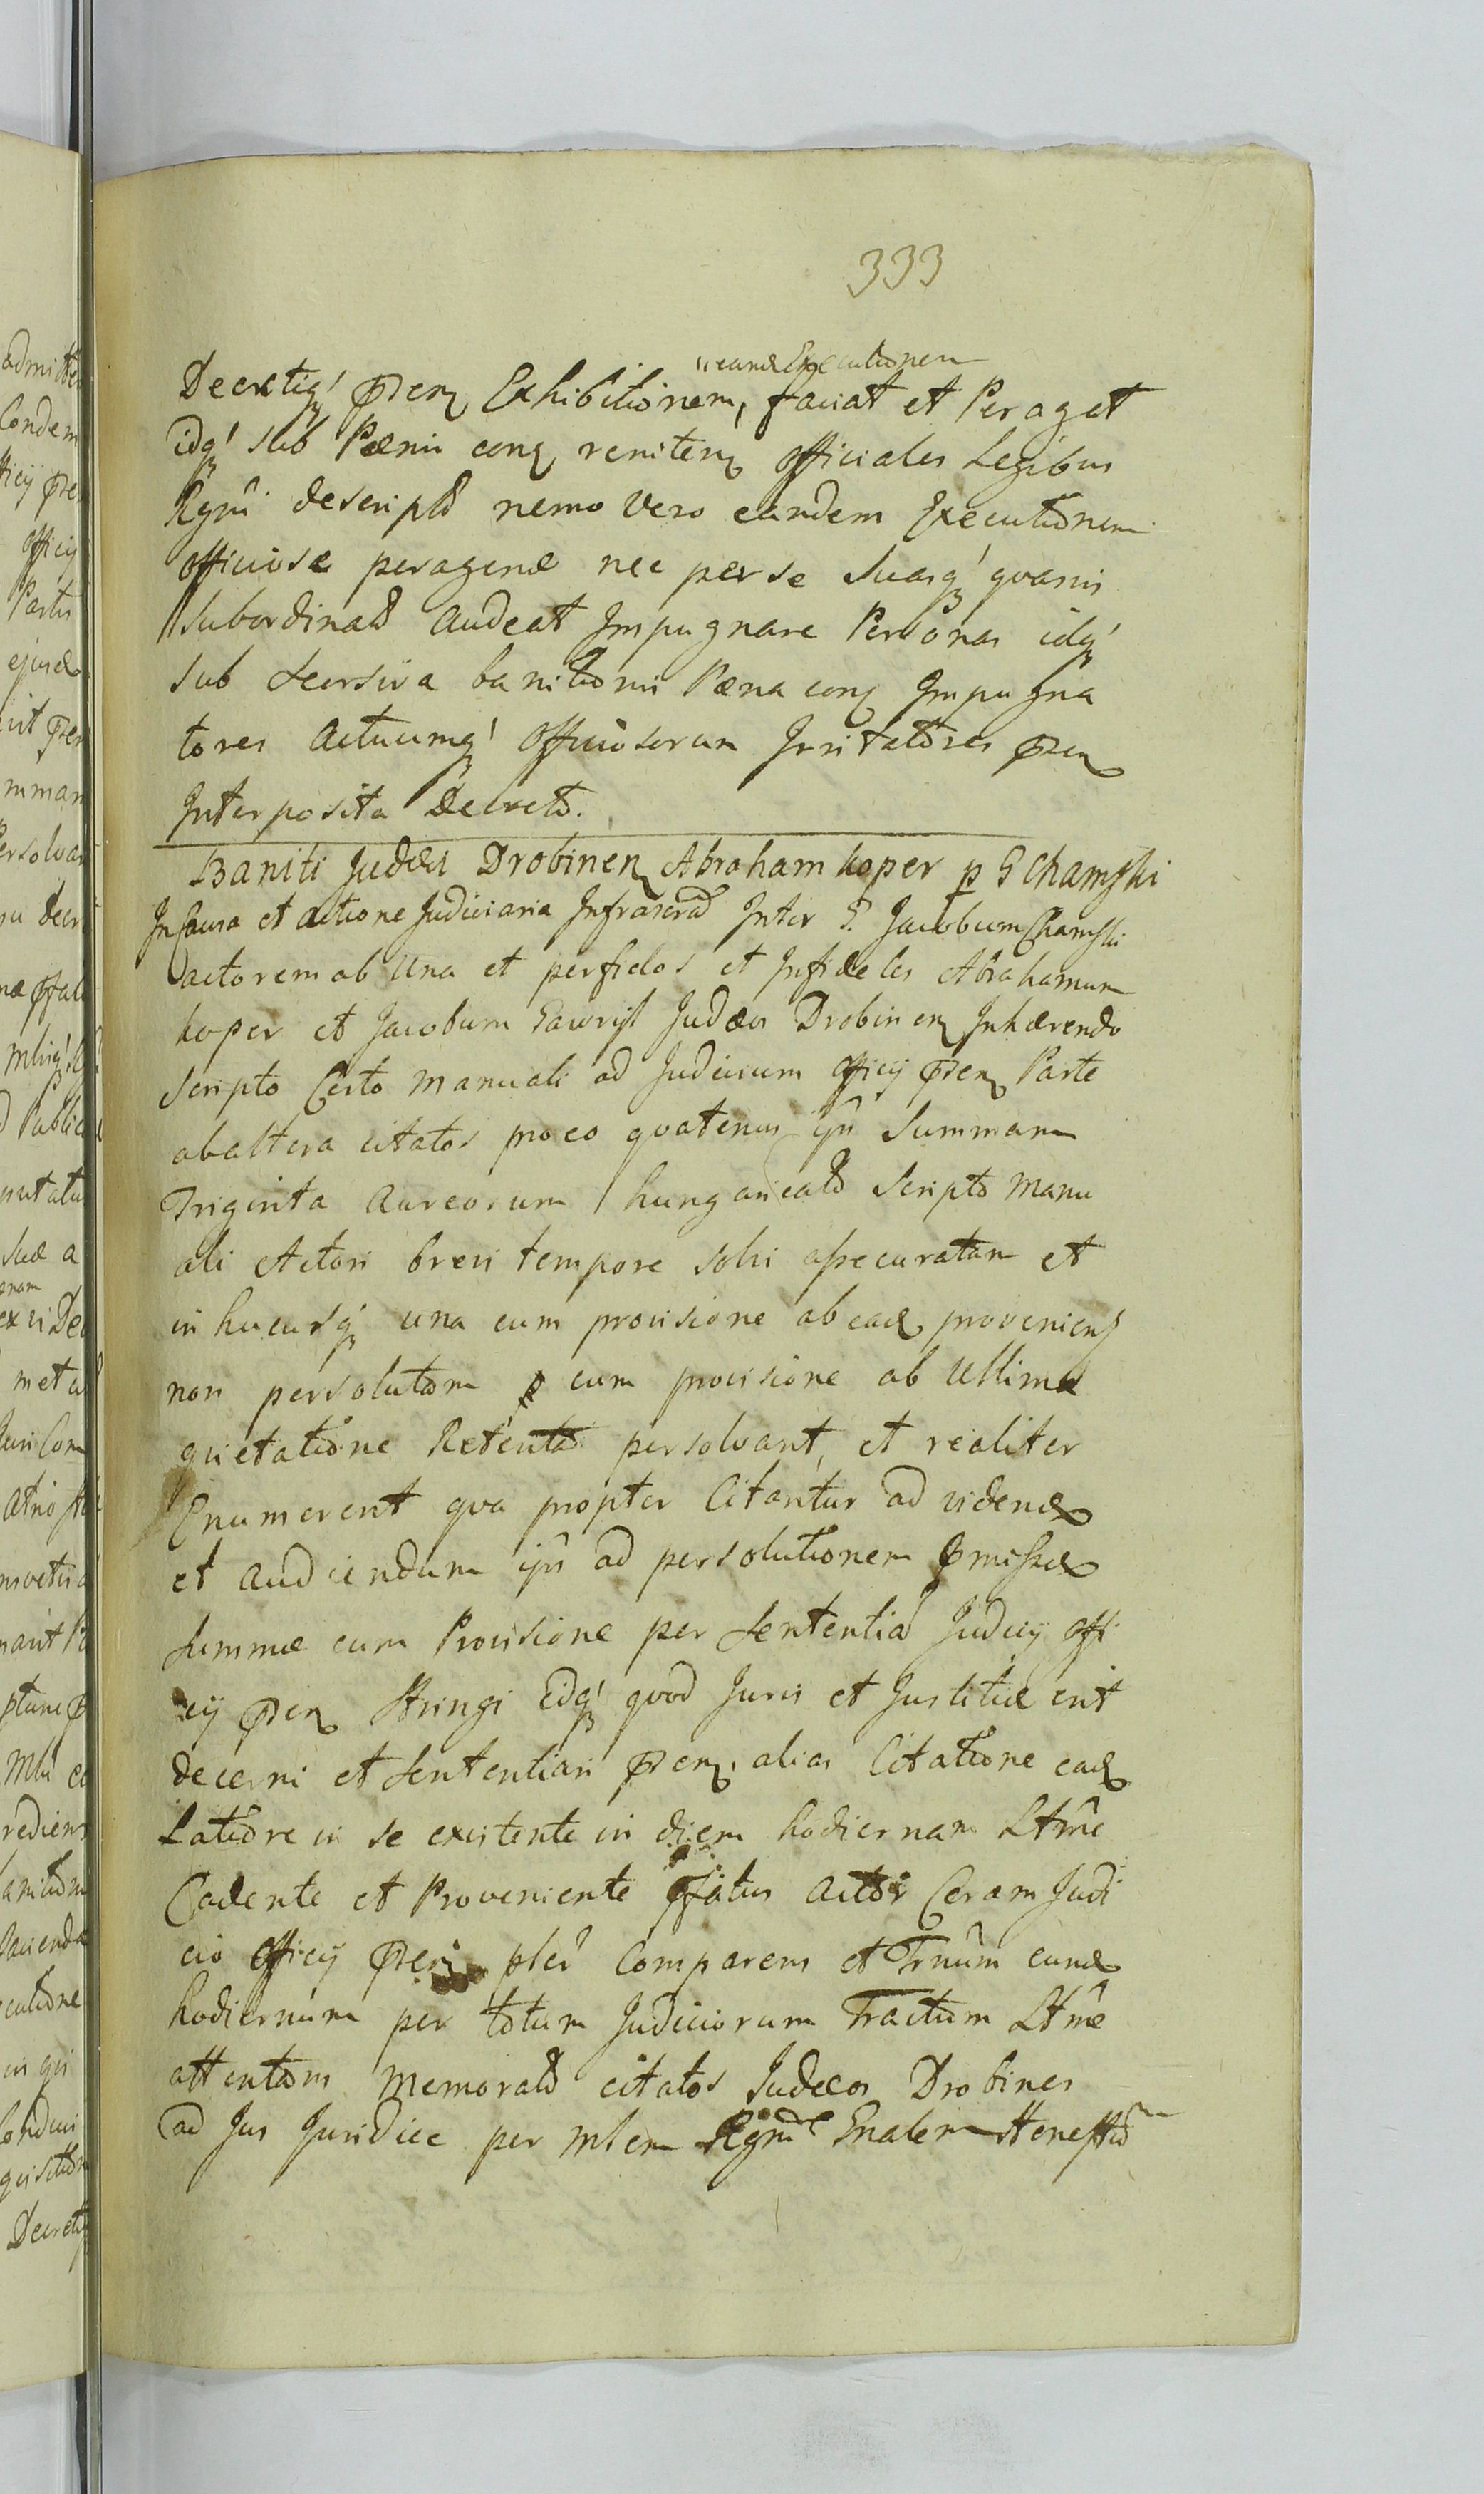 333
eand Executionem
Decretiq' pnen Exhibitionem, faciat et Peragat
idq' sub Pænis conq renitenq officiales Legibus
Regni descriptd nemo vero eandem Executionem
officiose peragend nec per se suasq' quasvis
Subordinatd audeat Impugnare Personas idq'
sub secersiva banitionis Pœna conq Impugna
tores actuumq' officiosorum Irritatores pnen
Interposita Decreto.
Baniti Judæi Drobinen Abraham koper p G Chamski
In Causa et actione Judiciaria Infrascrad Inter G. Jacobum Chamski
actorem ab Una et perfidos et Infideles Abrahamum
koper et Jacobum Judæos Drobinen Inhærendo
scripto Certo Manuali ad Judicium officij pnen Parte
ab altera citatos pro eo quatenus ijsi Summam
Triginta Aureorum hungaricald Scripto Manu
ali Actori brevi tempore solvi assecuratam et
in hucusq' una cum provisione ab ead proveniens
non persolutam cum provisione ab Ultima
quietatione Retentd persolvant, et realiter
Enumerent qua propter Citantur ad vidend
et audiendum ijsi ad persolutionem pmissæ
summæ cum Provisione per Sententiad Judicij offi
cij pnen Stringi idq' quod Juris et Justitiæ erit
decerni et sententiari pnen. alias Citatione ead
Latiore in se existente in diem hodiernam Ltme
Cadente et Proveniente pfatus actor Coram Judi
cio officij pnen pler Comparens et Trnum eund
hodiernum per totum Judiciorum Tractum Ltme
attentans Memoratd citatos Judæos Drobinen
ad Jus Juridice per Mlem Regni Gnalem